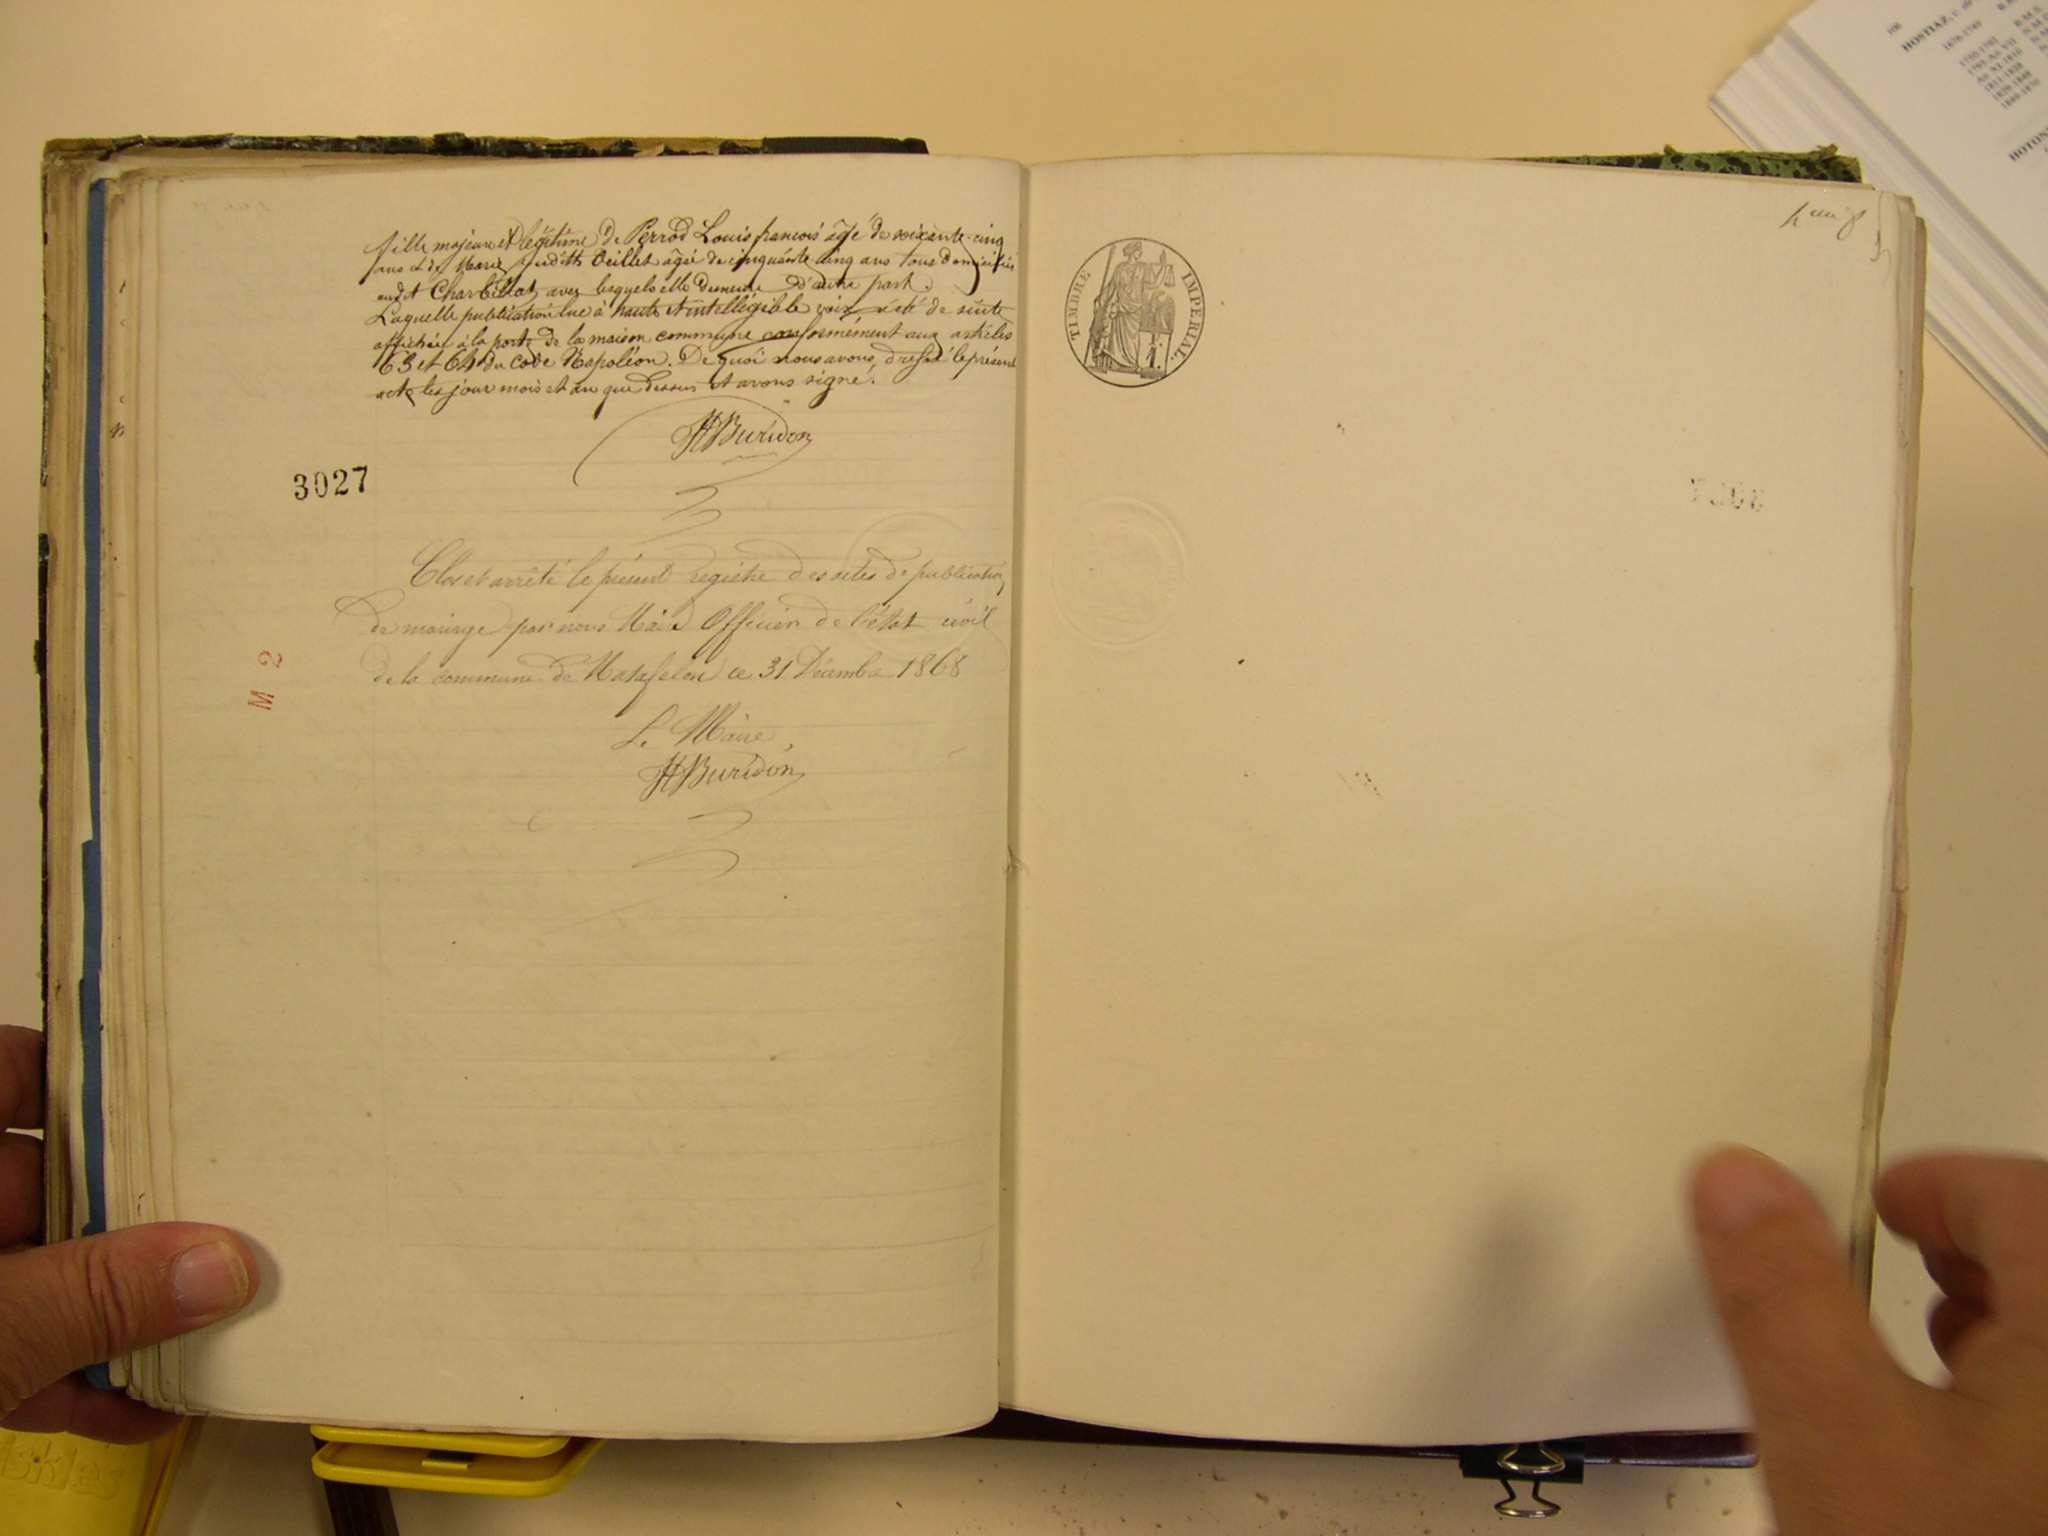 fille majeure et légitime de Perrod Louis francois âgé de soixante-cinq
ans et de Marie judith Oeillet agée de cinquante cinq ans tous domiciliés
audit Charbillat avec lesquels elle demeure d'autre part.
Laquelle publication lue à haute et intelligible voix a été de suite
affichée à la porte de la maison commune conformément aux articles
63 et 64 du code Napoléon. De quoi nous avons dressé le présent
acte les jour mois et an que dessus et avons signé.
HBuridon
3027
Clos et arrêté le présent registre des actes de publication
de mariage par nous Maire Officier de l'état civil
de la commune de Matafelon ce 31 Décembre 1868
M 2
Le Maire,
HBuridon
TIMBRE IMPERIAL.
HOSTIAZ,
1790-1792
1811-1828
1829-1848
1849-1870